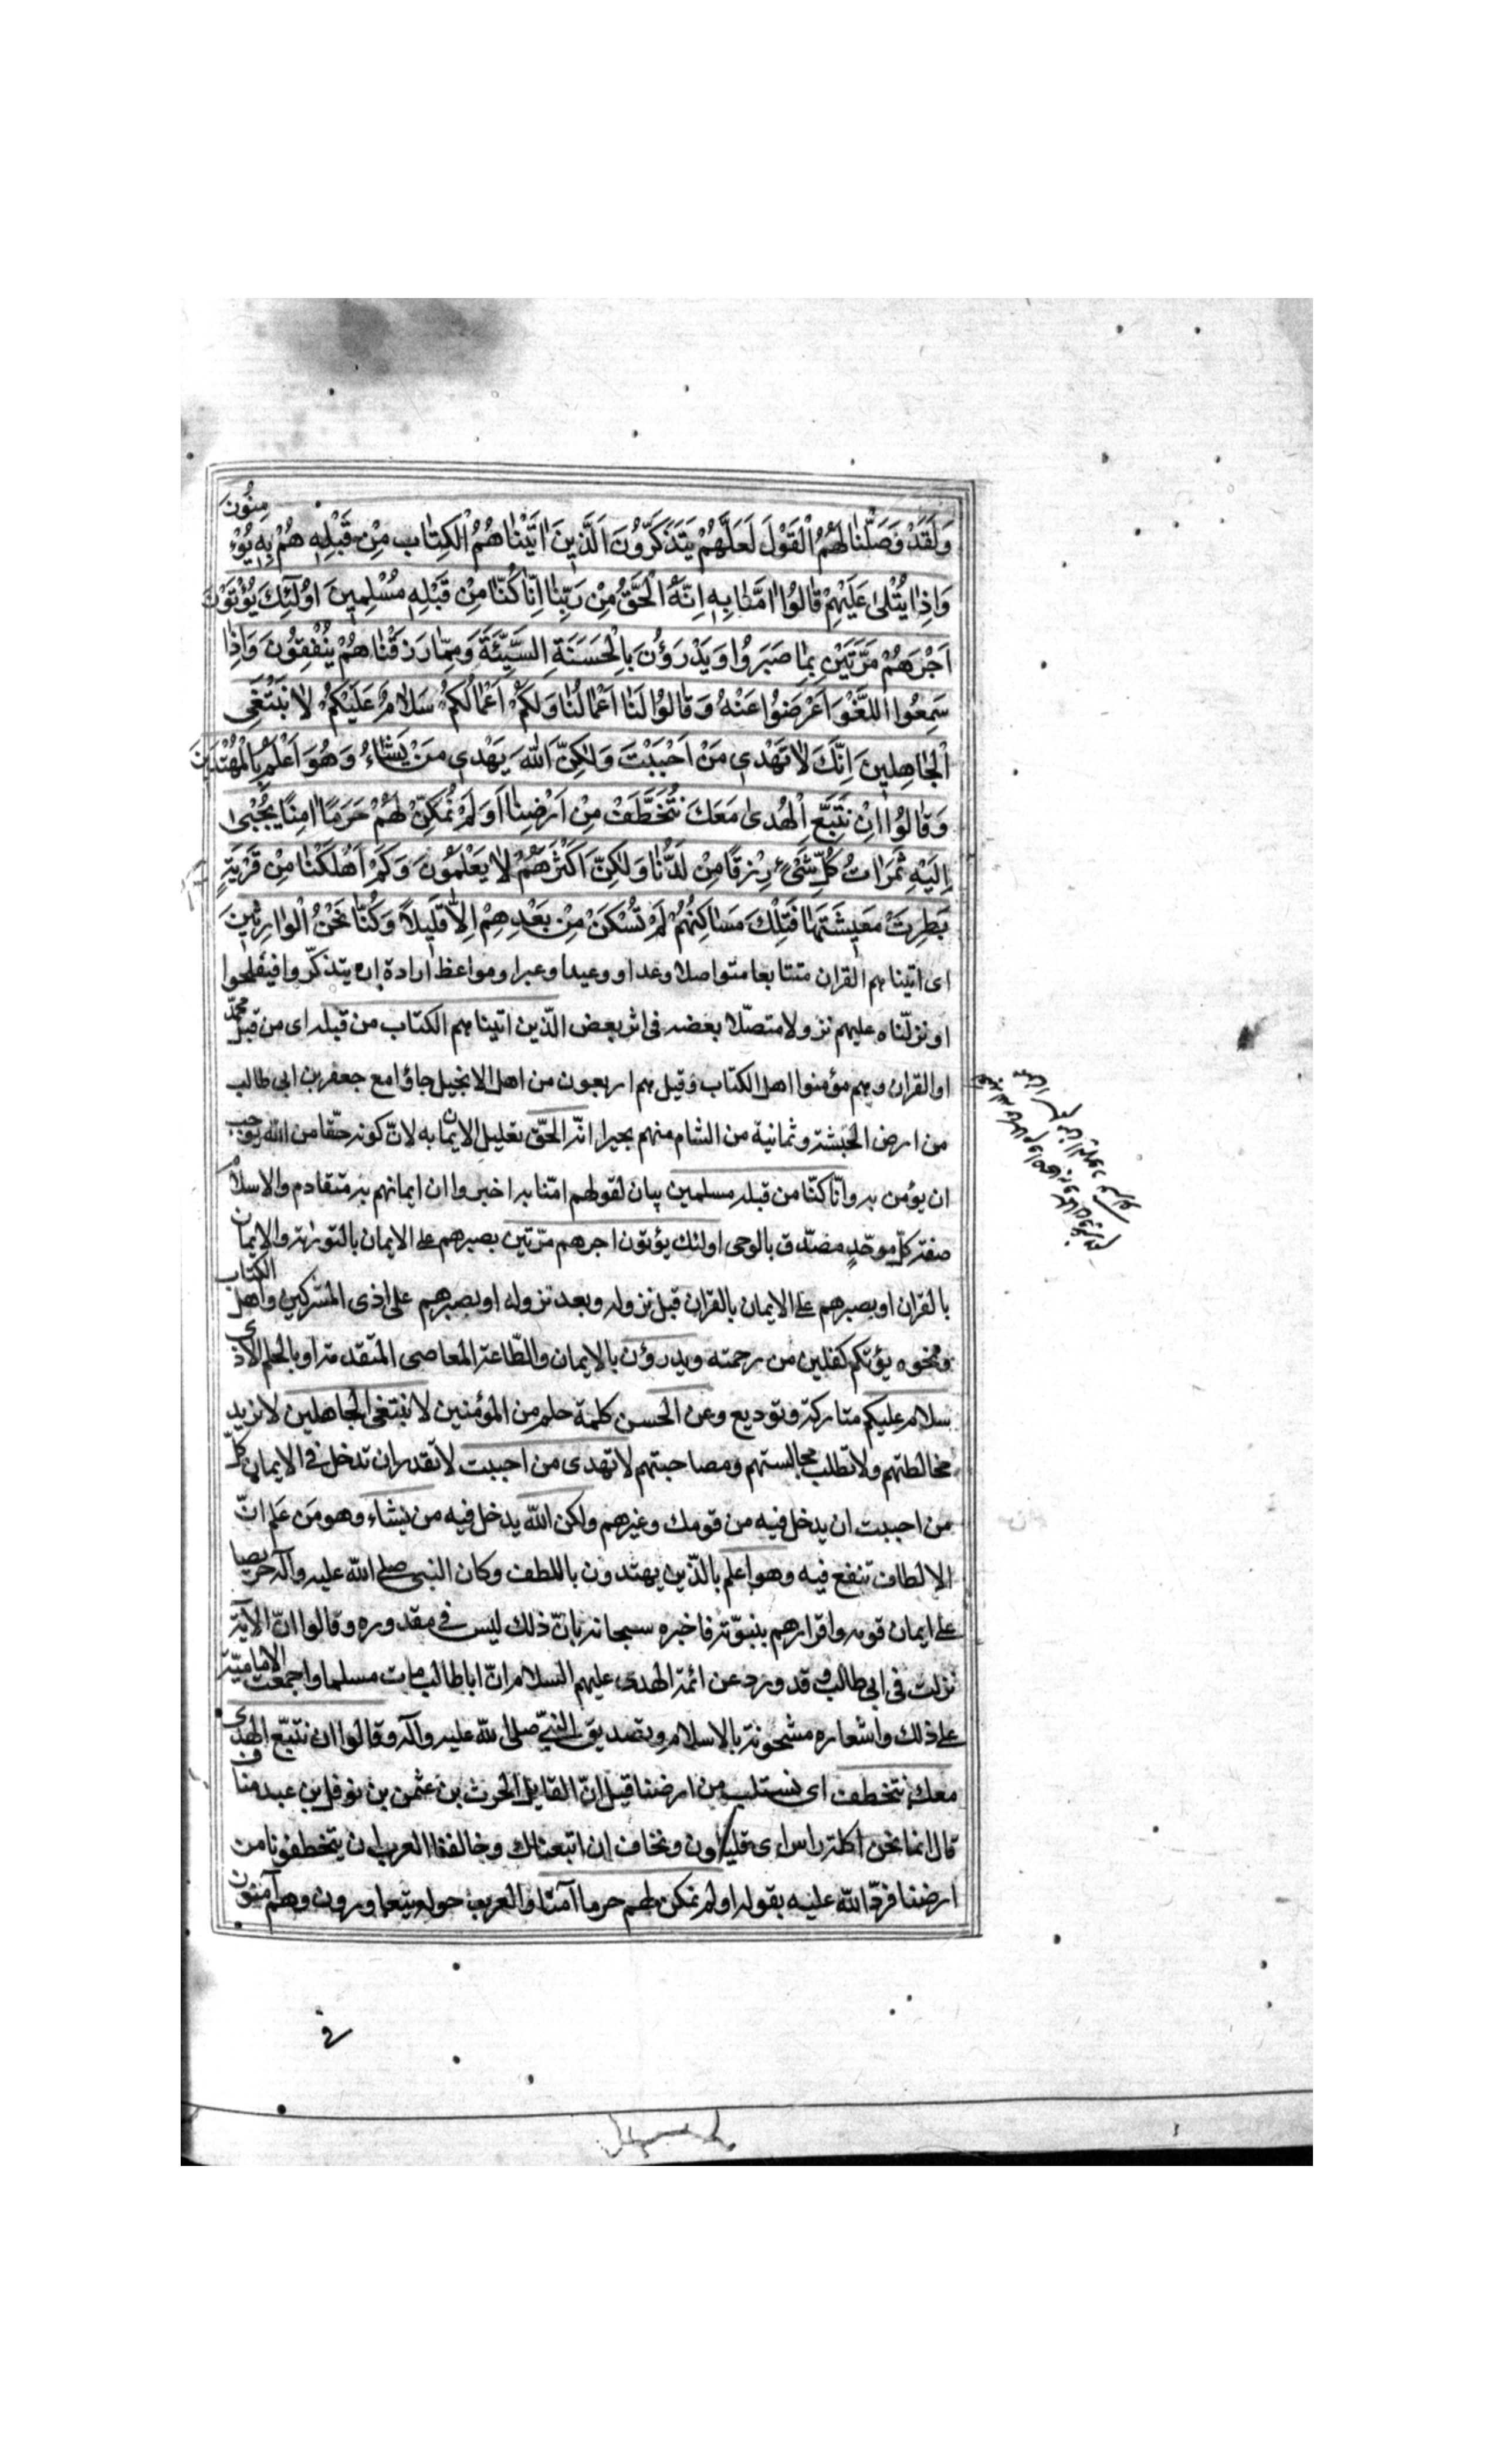 وَلَقَدْ وَصَّلْنَا لَهُمُ الْقَوْلَ لَعَلَّهُمْ يَتَذَكَّرُونَ اَلَّذِينَ اتَيْنَاهُمُ الْكِتَابَ مِنْ قَبْلِهِ هُمْ بِهِ يُؤْمِنُونَ
وَاِذَا يُتْلَى عَلَيْهِمْ قَالُوا امَنَّا بِهِ اِنَّهُ الْحَقُّ مِنْ رَبِّنَا اِنَّا كُنَّا مِنْ قَبْلِهِ مُسْلِمِينَ اوُلَئِكَ يُؤْتَوْنَ
اَجْرَهُمْ مَرَّتَيْنِ بِمَا صَبَرُوا وَيَدْرَؤُنَ بِالْحَسَنَةِ السَّيِّئَةَ وَمِمَّا رَزَقْنَاهُمْ يُنْفِقُونَ وَاِذَا
سَمِعُوا اللَّغْوَ اَعْرَضُوا عَنْهُ وَقَالُوا لَنَا اَعْمَالُنَا وَلَكُمْ اَعْمَالُكُمْ سَلَامٌ عَلَيْكُمْ لَا نَبْتَغِى
الْجَاهِلِينَ اِنَّكَ لَا تَهْدِى مَنْ اَحْبَبْتَ وَلَكِنَّ اللّهَ يَهْدِى مَنْ يَشَاءُ وَهُوَ اَعْلَمُ بِالْمُهْتَدِينَ
وَقَالُوا اِنْ نَتَّبِعِ الْهُدَى مَعَكَ نُتَخَطَّفْ مِنْ اَرْضِنَا اَوَلَمْ نُمَكِّنْ لَهُمْ حَرَمًا امِنًا يُجْبَى
اِلَيْهِ ثَمَرَاتُ كُلِّ شَىْءٍ رِزْقًا مِنْ لَدُنَّا وَلَكِنَّ اَكْثَرَهُمْ لَا يَعْلَمُونَ وَكَمْ اَهْلَكْنَا مِنْ قَرْيَةٍ
بَطِرَتْ مَعِيشَتَهَا فَتِلْكَ مَسَاكِنُهُمْ لَمْ تُسْكَنْ مِنْ بَعْدِهِمْ اِلَّا قَلِيلًا وَكُنَّا نَحْنُ الْوَارِثِينَ
اى اتيناهم القران متتابعا متواصلا وعدا ووعيدا وعبرا ومواعظ ارادة ان يتذكّروا فيفلحوا
او نزلّناه عليهم نزولا متصّلا بعضه فى اثر بعض الّذين اتيناهم الكتاب من قبله اى من قبل محمّد
او القران وهم مؤمنوا اهل الكتاب وقيل هم اربعون من اهل الانجيل جاؤا مع جعفر بن ابى طالب
من ارض الحبشة وثمانية من الشام منهم بحيرا انّه الحقّ تعليل الايمان به لانّ كونه حقّا من الله يوجب
ان يؤمن به وانّا كنّا من قبله مسلمين بيان لقولهم امّنا به اخبروا ان ايمانهم به متقادم والاسلام
صفة كلّ موحّدٍ مصّدق بالوحى اولئك يؤتون اجرهم مرّتين بصبرهم على الايمان بالتوراة والايمان
بالقران او بصبرهم على الايمان بالقران قبل نزوله وبعد نزوله او بصبرهم على اذى المشركين واهل الكتاب
ونحوه يؤتكم كفلين من رحمته ويدرؤن بالايمان والطّاعة المعاصى المتقدمة او بالحلم الاذى
سلام عليكم متاركة وتوديع وعن الحسن كلمة حلم من المؤمنين لا نبتغى الجاهلين لا نريد
مخالطتهم ولا تطلب مجالستهم ومصاحبتهم لا تهدى من احببت لا تقدر ان تدخل فى الايمان كلّ
من احببت ان يدخل فيه من قومك وغيرهم ولكن الله يدخل فيه من يشاء وهو مَن عَلم انّ
الالطاف تنفع فيه وهو اعلم بالذّين يهتدون باللطف وكان النبى صلى الله عليه وآله حريصا
على ايمان قومه واقرارهم بنبوّته فاخبره سبحانه بانّ ذلك ليس فى مقدوره وقالوا انّ الآية
نزلت فى ابى طالب وقد ورد عن ائمة الهدى عليهم السلام انّ اباطالب مات مسلما واجمعت الاماميّة
على ذلك واشعاره مشحونة بالاسلام وتصديق النبىّ صلى الله عليه وآله وقالوا ان نتبّع الهدى
معك نتخطف اى نستلب من ارضنا قيل انّ القايل الحرث بن عثمن بن نوفل بن عبد مناف
قال انما نحن اكلة راس اى قليلون ونخاف ان اتبعناك وخالفنا العرب ان يتخطفونا من
ارضنا فردّ الله عليه بقوله اولم نمكن لهم حرما آمنا والعرب حوله يتغاورون وهم آمنون
فى